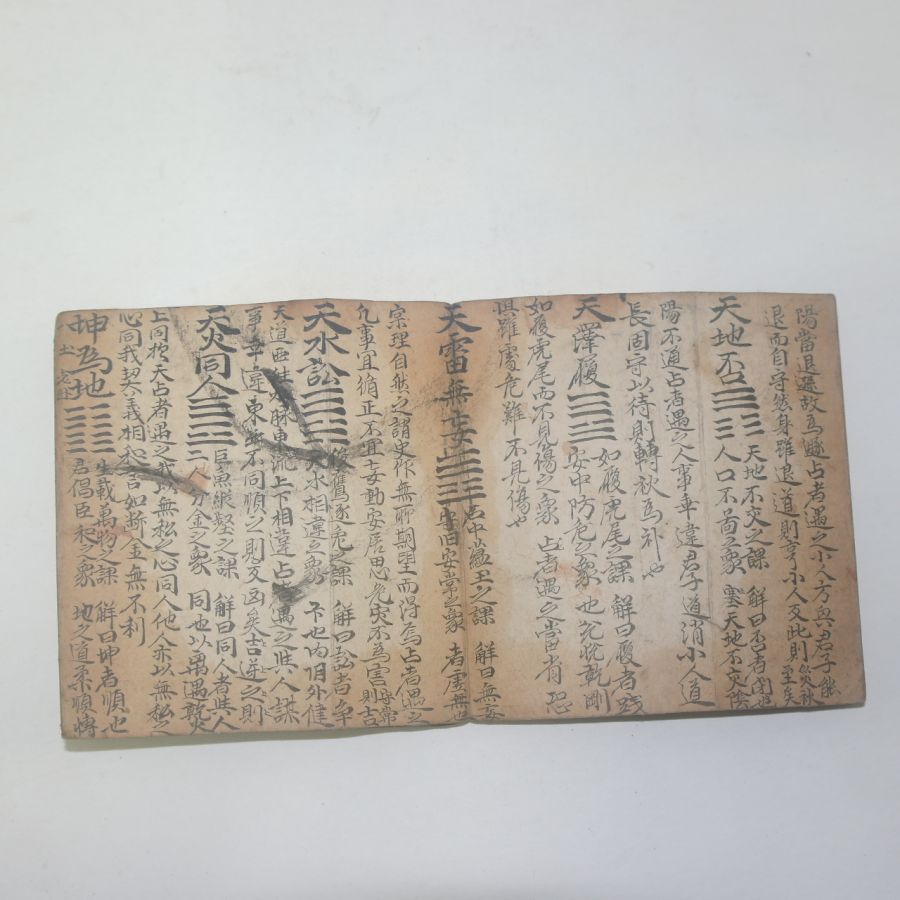 陽當退遯故爲遯占者遇之小人方與君子能
退而自守然身雖退道則亨小人反此則災秋至矣
天地否 天地不交之課 解曰否者閉也
人口不 之象 塞天地不交陰
陽不通占者遇之人事乖違君子道消小人道
長固守以待則轉秋爲祁也
天澤履 如履虎尾之課 解曰履者踐
安中防危之象 也兌悅乾剛
如履虎尾而不見傷之象 占者遇之當省 恐
懼雖處危難 不見傷也
天雷無妄 石中蘊玉之課 解曰無妄
守旧安常之象 者虛無也
宗理自然之謂史作無聊期望而得焉占者遇之
凡事宜循正不宜妄動安居思危灾不爲害則吉
天水訟 俊鷹逐兎之課 解曰訟者爭
天水相違之象 下也內旧外健
天道西 水脉東流上下相違占者遇之與人謀
事乖 東 不同順之則交 矣吉逆之則
天火同人 之課 解曰同人者與人
二人分金之象 同也以 遇乾火
上同於天占者遇之我以無私之心同人他亦以無私之
心同我契義相和言如斷金無不利
坤爲地 生載萬物之課 解曰坤者順也
君倡臣和之象 地之道柔順